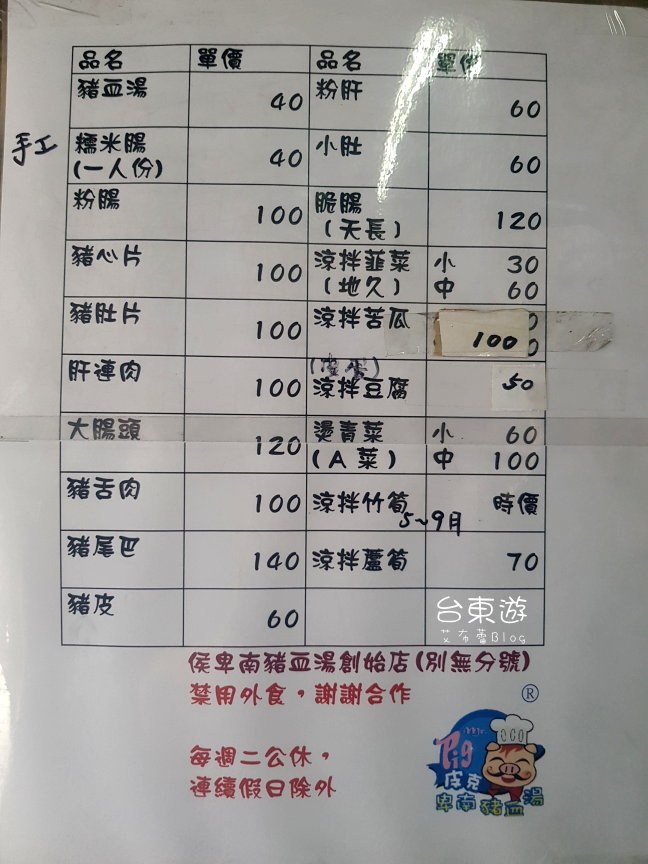 品名 單價 品名 單價
豬血湯 40 粉肝 60
手工 糯米腸 40 小肚 60
(一人份)
粉腸 100 脆腸 120
(天長)
豬心片 100 涼拌韮菜 小 30
(地久) 中 60
豬肚片 100 涼拌苦瓜 100
肝連肉 100 涼拌豆腐 50
大腸頭 120 燙青菜 小 60
(A菜) 中 100
豬舌肉 100 涼拌竹筍 時價
5~9月
豬尾巴 140 涼拌蘆筍 70
豬皮 60
台東遊
艾布蕾Blog
侯卑南豬血湯創始店(別無分號)
禁用外食，謝謝合作
®
每週二公休，
連續假日除外
Pig
皮克
卑南豬血湯